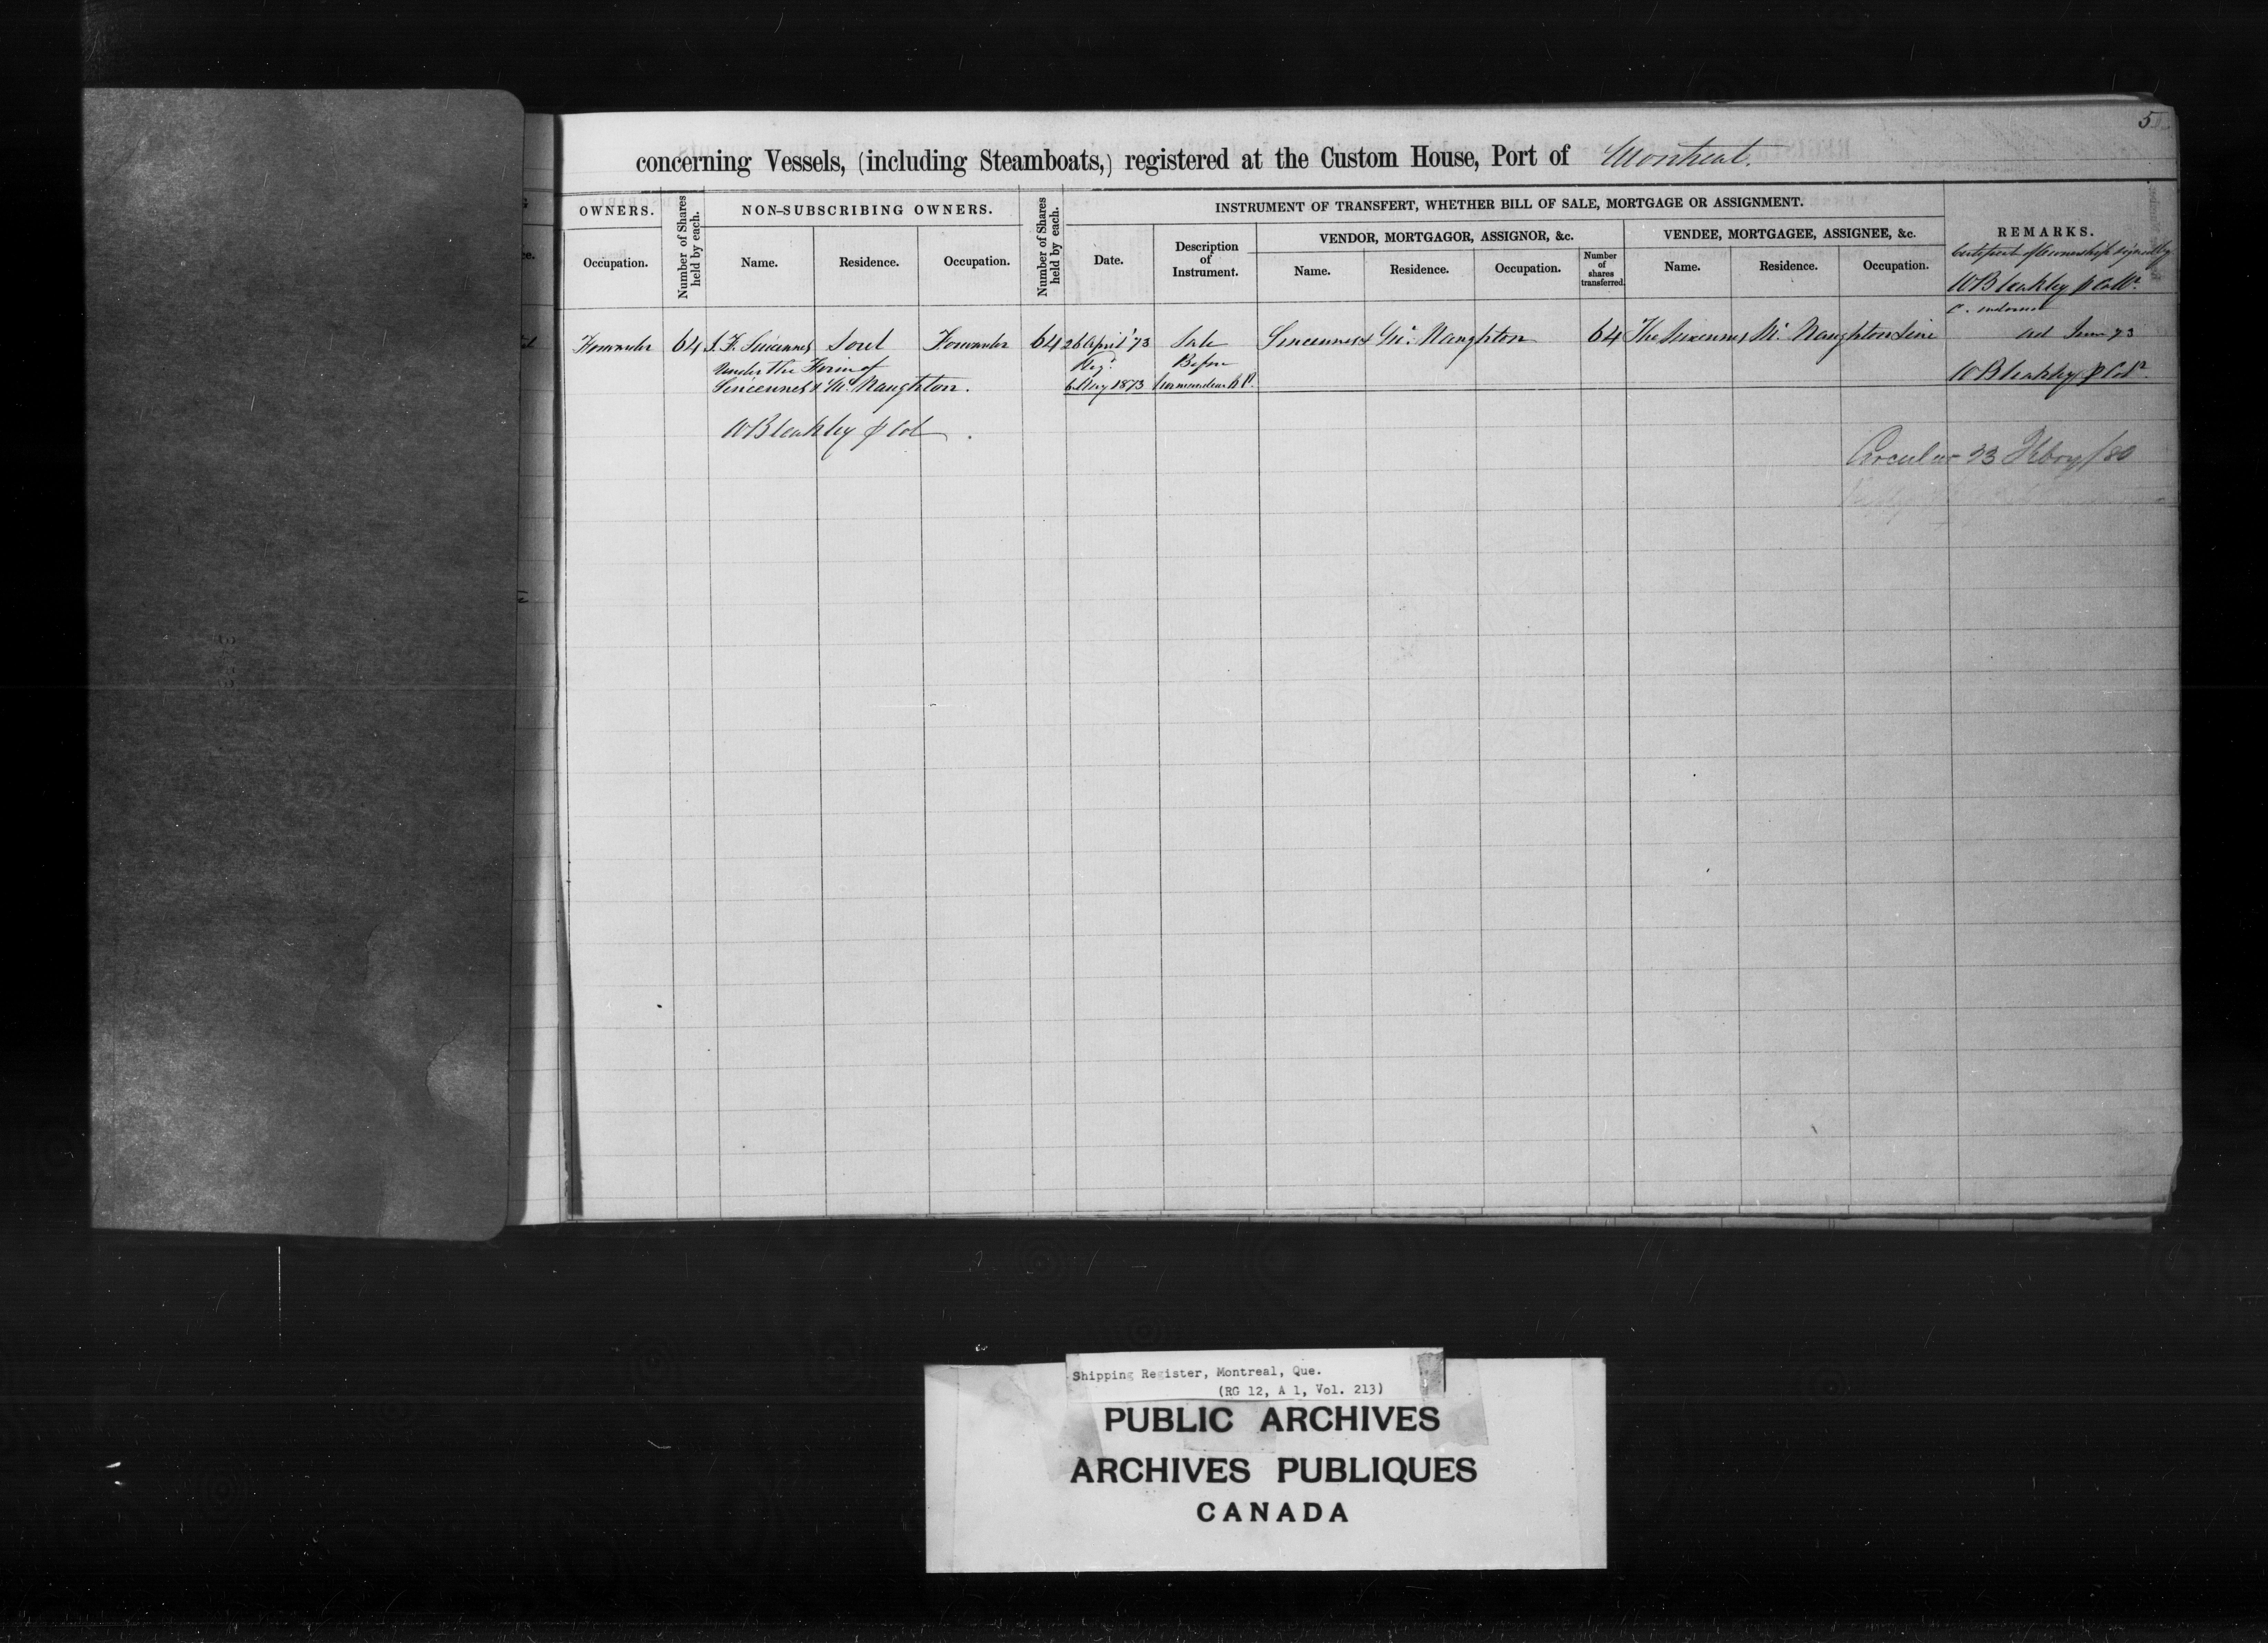 5
concerning Vessels, (including Steamboats,) registered at the Custom House, Port of Montreal.
OWNERS.
Number of Shares held by each.
NON-SUBSCRIBING OWNERS.
Number of Shares held by each.
INSTRUMENT OF TRANSFERT, WHETHER BILL OF SALE, MORTGAGE OR ASSIGNMENT.
REMARKS.
Occupation.
Name.
Residence.
Occupation.
Date.
Description of Instrument.
VENDOR, MORTGAGOR, ASSIGNOR, &c.
VENDEE, MORTGAGEE, ASSIGNEE, &c.
Name.
Residence.
Occupation.
Number of shares transferred.
Name.
Residence.
Occupation.
Certificate of Ownership signed by
W Bleakley p Collr.
C. endorsed
Forwarder 64 J. F. Sincennes Sorel Forwarder 64 26 April '73 Sale Sincennes & Mc Naughton 64 The Sincennes Mc Naughton Line
June 73
Under the Firm of
Regd Before
Sincennes & Mc Naughton.
6 May 1873
W Bleakley p Colr.
W Bleakley p Col
Circular 23 Feby/80
Shipping Register, Montreal, Que.
(RG 12, A 1, Vol. 213)
PUBLIC ARCHIVES
ARCHIVES PUBLIQUES
CANADA